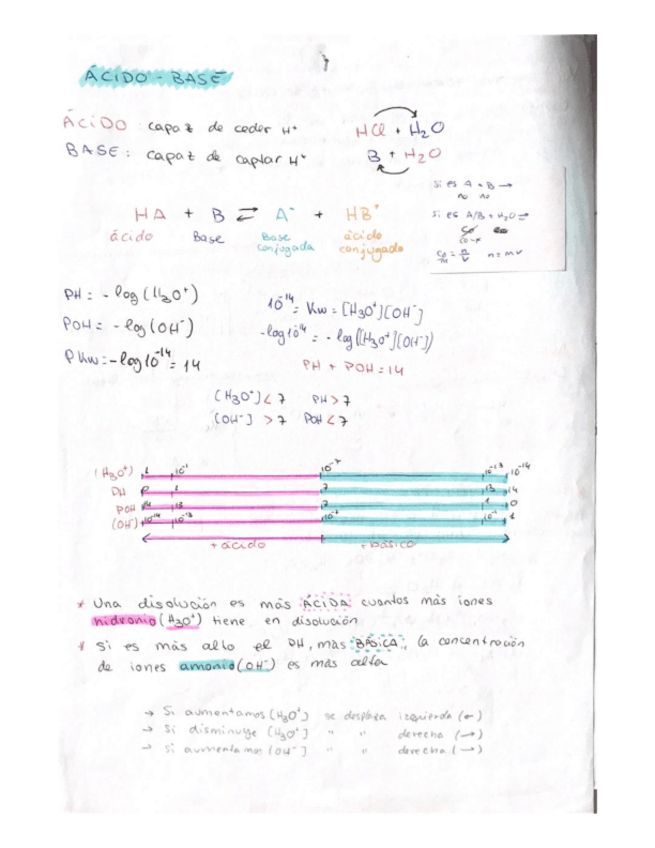 ÁCIDO - BASE
ÁCIDO : capaz de ceder H⁺
HCl + H₂O
BASE : capaz de captar H⁺
B + H₂O
Si es A + B →
no no
Si es A/B + H₂O ⇌
HA + B ⇌ A⁻ + HB⁺
ácido Base Base conjugada ácido conjugado
n = MV
PH = - log (H₃O⁺)
POH = - log (OH⁻)
PKw = - log 10⁻¹⁴ = 14
10⁻¹⁴ = Kw = [H₃O⁺][OH⁻]
- log 10⁻¹⁴ = - log ([H₃O⁺][OH⁻])
PH + POH = 14
(H₃O⁺] < 7 PH > 7
[OH⁻] > 7 POH < 7
(H₃O⁺) 1 10⁻¹ 10⁻⁷ 10⁻¹³ 10⁻¹⁴
PH 0 1 7 13 14
POH 14 13 7 1 0
(OH⁻) 10⁻¹⁴ 10⁻¹³ 10⁻⁷ 10⁻¹ 1
+ ácido + básico
* Una disolución es más ÁCIDA cuantos más iones
hidronio (H₃O⁺) tiene en disolución
* Si es más alto el PH, más BÁSICA, la concentración
de iones amonio (OH⁻) es más alta
→ Si aumentamos (H₃O⁺) se desplaza izquierda (←)
→ Si disminuye (H₃O⁺] " " derecha (→)
→ Si aumentamos (OH⁻] " " derecha (→)